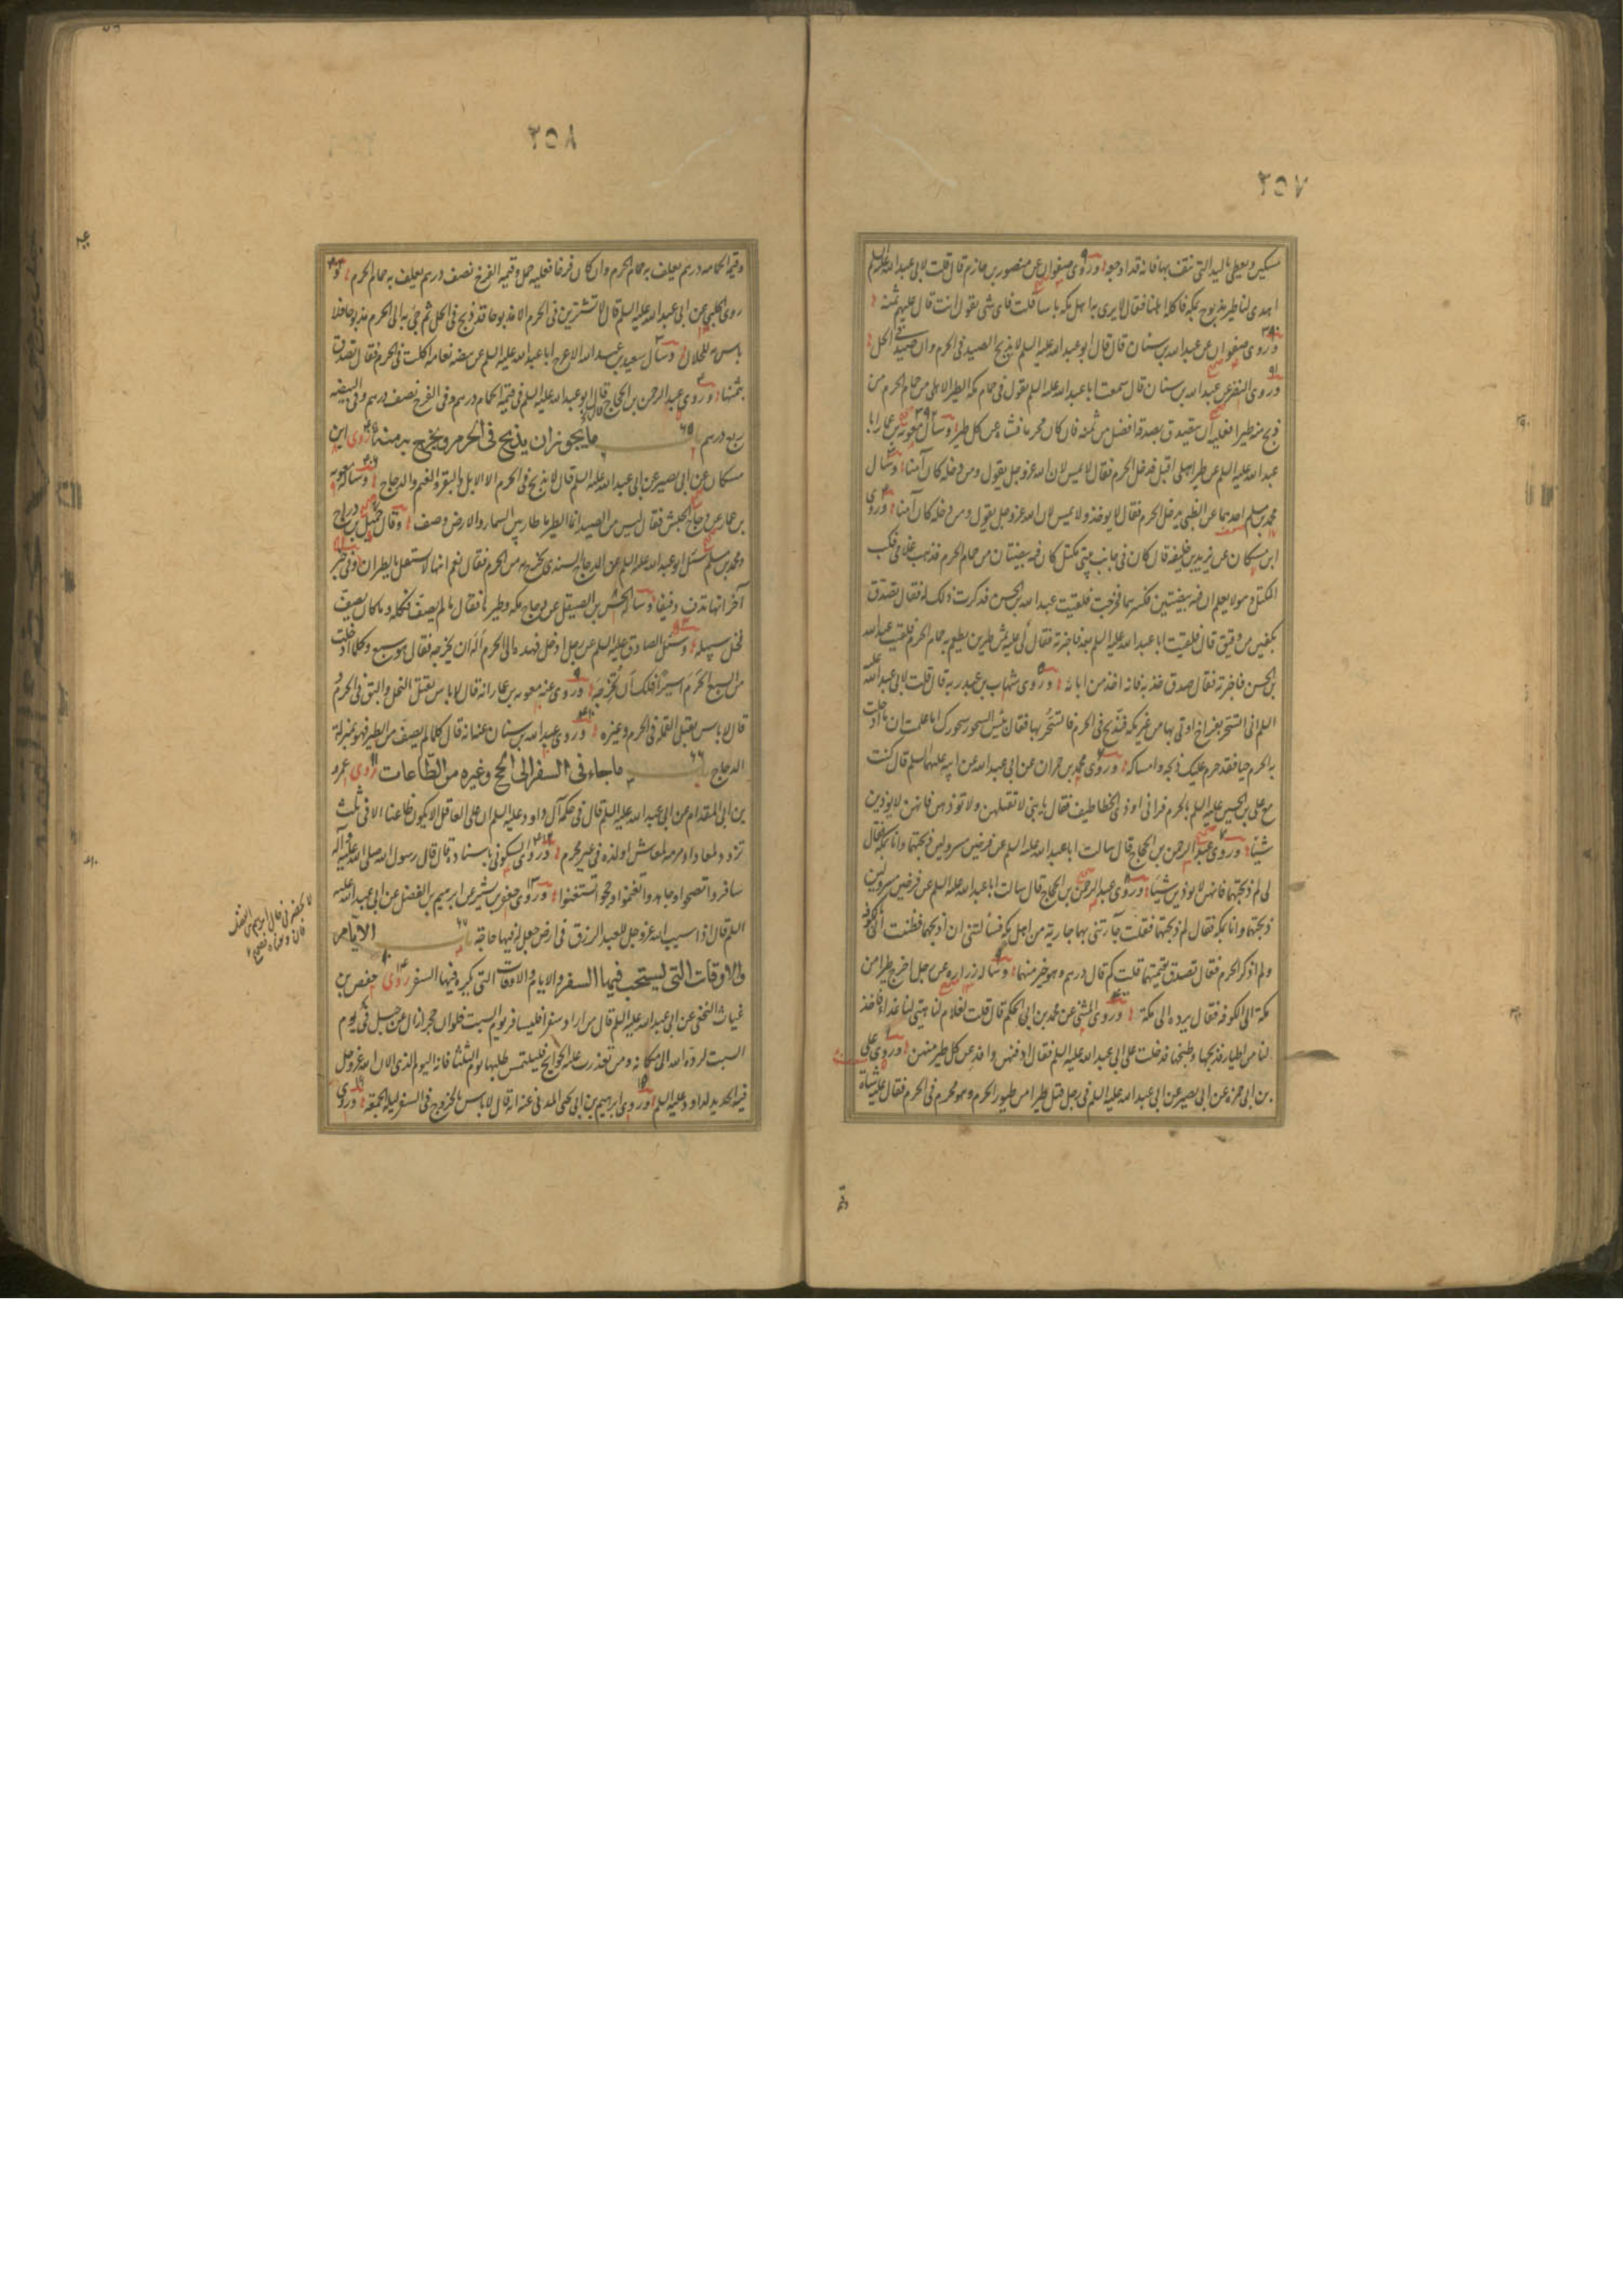 ٢٥٧
مسكين ويعطي باليد التي نتف بها فانه قد اوجعه وروى صفوان عن منصور بن حازم قال قلت لابي عبد الله عليه السلم
اهدى لنا طير مذبوح بمكة فاكله اهلنا فقال لا يرى به اهل مكة باسا قلت فاى شى تقول انت قال عليهم ثمنه
وروى صفوان عن عبد الله بن سنان قال قال ابو عبد الله عليه السلم لا يذبح الصيد في الحرم وان صيد في الحل
وروى النضر عن عبد الله بن سنان قال سمعت ابا عبد الله عليه السلم يقول في حمام مكة الطير الاهلى من حمام الحرم من
ذبح منه طيرا فعليه ان يتصدق بصدقة افضل من ثمنه فان كان محرما فشاة عن كل طير وسال معوية بن عمار ابا
عبد الله عليه السلم عن طير اهلى اقبل فدخل الحرم فقال لا يمس لان الله عز وجل يقول ومن دخله كان آمنا وسال
محمد بن مسلم احدهما عن الظبي يدخل الحرم فقال لا يوخذ ولا يمس لان الله عز وجل يقول ومن دخله كان آمنا وروى
ابن مسكان عن يزيد بن خليفة قال كان في جانب بيتي مكتل كان فيه بيضتان من حمام الحرم فذهب غلامي فكب
المكتل وهو لا يعلم ان فيه بيضتين فكسرهما فخرجت فلقيت عبد الله بن الحسن فذكرت ذلك له فقال تصدق
بكفين من دقيق قال فلقيت ابا عبد الله عليه السلم بعد فاخبرته فقال لى عليه ثمن طيرين يطعم به حمام الحرم فلقيت عبد الله
بن الحسن فاخبرته فقال صدق خذ به فانه اخذ من ابائه وروى شهاب بن عبد ربه قال قلت لابي عبد الله عليه
السلم انى اتسحر بفراخ اوتى بها من غير مكة فتذبح في الحرم فاتسحر بها فقال بئس السحور سحورك اما علمت ان ما ادخلت
به الحرم حيا فقد حرم عليك ذبحه وامساكه وروى محمد بن حمران عن ابي عبد الله عن ابيه عليهما السلم قال كنت
مع على بن الحسين عليه السلم بالحرم فرانى اوذى الخطاطيف فقال يا بنى لا تقتلهن ولا توذهن فانهن لا يوذين
شيئا وروى عبد الرحمن بن الحجاج قال سالت ابا عبد الله عليه السلم عن فرخين مسرولين ذبحتهما وانا بمكة فقال
لى لم ذبحتهما فانهن لا يوذين شيئا وروى عبد الرحمن بن الحجاج قال سالت ابا عبد الله عليه السلم عن فرخين مسرولين
ذبحتهما وانا بمكة فقال لم ذبحتهما فقلت جاءتنى بهما جارية من اهل مكة فسألتنى ان اذبحهما فظننت انى بالكوفة
ولم اذكر الحرم فقال تصدق بقيمتهما قلت كم قال درهم وهو خير منهما وساله زرارة عن رجل اخرج طيرا من
مكة الى الكوفة فقال يرده الى مكة وروى المثنى عن محمد بن ابي الحكم قال قلت لغلام لنا هيئ لنا غداءً فاخذ
لنا من اطيار فذبحها وطبخها فدخلت على ابي عبد الله عليه السلم فقال ادفنهن وافد عن كل طير منهن وروى على
بن ابي حمزة عن ابي بصير عن ابي عبد الله عليه السلم في رجل قتل طيرا من طيور الحرم وهو محرم في الحرم فقال عليه شاة
وقيمة
٢٥٨
وقيمة الحمامة درهم يعلف به حمام الحرم وان كان فرخا فعليه حمل وقيمة الفرخ نصف درهم يعلف به حمام الحرم و
روى الحلبي عن ابي عبد الله عليه السلم قال لا تشترين في الحرم الا مذبوحا قد ذبح في الحل ثم جئ به الى الحرم مذبوحا فلا
باس به للحلال وسال سعيد بن عبد الله الاعرج ابا عبد الله عليه السلم عن بيضة نعامة اكلت في الحرم فقال تصدق
بثمنها وروى عبد الرحمن بن الحجاج قال قال ابو عبد الله عليه السلم في قيمة الحمام درهم وفي الفرخ نصف درهم وفي البيضة
ربع درهم باب ما يجوز ان يذبح في الحرم ويخرج به منه روى ابن
مسكان عن ابي بصير عن ابي عبد الله عليه السلم قال لا يذبح في الحرم الا الابل والبقر والغنم والدجاج وساله معوية
بن عمار عن دجاج الحبش فقال ليس من الصيد انما الطير ما طار بين السماء والارض وصف وقال جميل بن دراج
ومحمد بن مسلم سئل ابو عبد الله عليه السلم عن الدجاج السندى يخرج به من الحرم فقال نعم انها لا تستقل بالطيران وفي خبر
آخر انها تدف دفيفا وساله الحسن بن الصيقل عن دجاج مكة وطيرها فقال ما لم يصف فكله وما كان يصف
فخل سبيله وسئل الصادق عليه السلم عن رجل ادخل فهده الى الحرم أله ان يخرجه فقال هو سبع وكلما ادخلت
من السبع الحرم اسيرا فلك ان تخرجه وروى عنه معوية بن عمار انه قال لا باس بقتل النمل والبق في الحرم و
قال لا باس بقتل القملة في الحرم وغيره وروى عبد الله بن سنان عنه انه قال كلما لم يصف من الطير فهو بمنزلة
الدجاج باب ما جاء في السفر الى الحج وغيره من الطاعات روى عمرو
بن ابي المقدام عن ابي عبد الله عليه السلم قال في حكمة آل داود عليه السلم ان على العاقل ان لا يكون ظاعنا الا في ثلث
تزود لمعاد او مرمة لمعاش او لذة في غير محرم وروى السكونى باسناده قال قال رسول الله صلى الله عليه وآله
سافروا تصحوا وجاهدوا تغنموا وحجوا تستغنوا وروى جعفر بن بشير عن ابرهيم بن الفضل عن ابي عبد الله عليه
السلم قال اذا سبب الله عز وجل للعبد الرزق في ارض جعل له فيها حاجة باب الايام
والاوقات التى يستحب فيها السفر والايام والاوقات التى يكره فيها السفر روى حفص بن
غياث النخعى عن ابي عبد الله عليه السلم قال من اراد سفرا فليسافر يوم السبت فلو ان حجرا زال عن جبل في يوم
السبت لرده الله الى مكانه ومن تعذرت عليه الحوائج فليلتمس طلبها يوم الثلثا فانه اليوم الذى الان الله عز وجل
فيه الحديد لداود عليه السلم وروى ابرهيم بن ابي يحيى المدنى عنه انه قال لا باس بالخروج في السفر ليلة الجمعة وروى